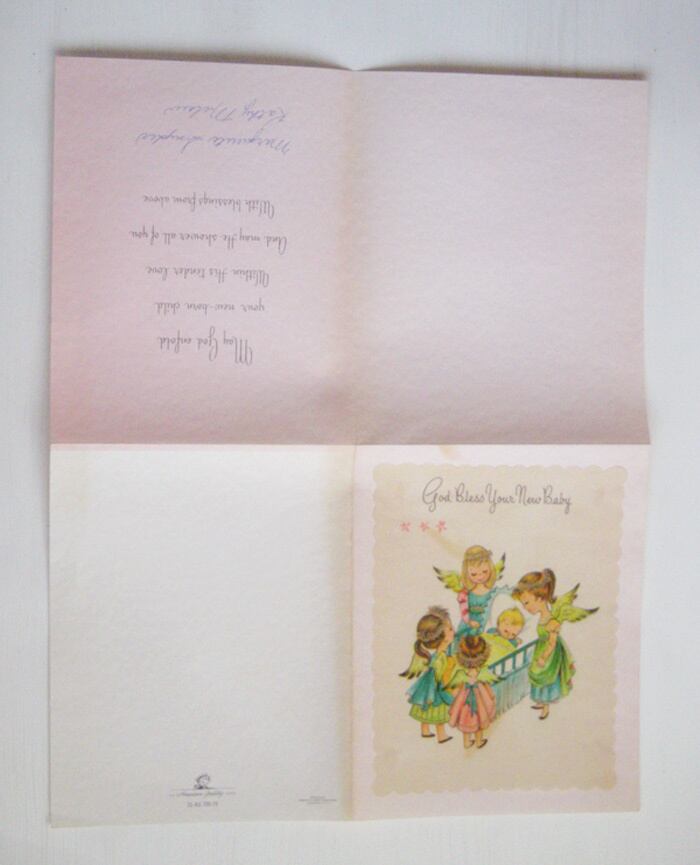 God Bless Your New Baby
May God enfold
your new-born child
Within His tender love
And may He shower all of you
With blessings from above
Kathy